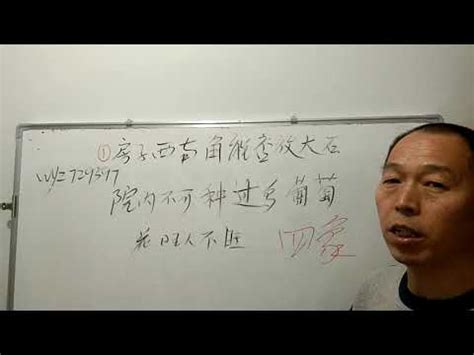 ①房子西南角能否放大石
院内不可种过多葡萄
花旺人不旺 四象